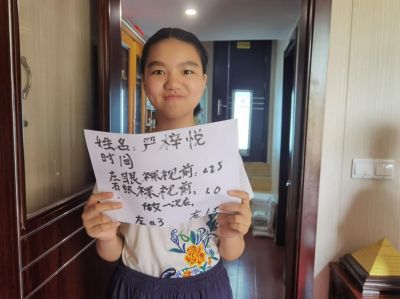 姓名：严梓悦
时间
左眼裸视前：0.25
右眼裸视前：1.0
做一次后
左0.3 右1.5